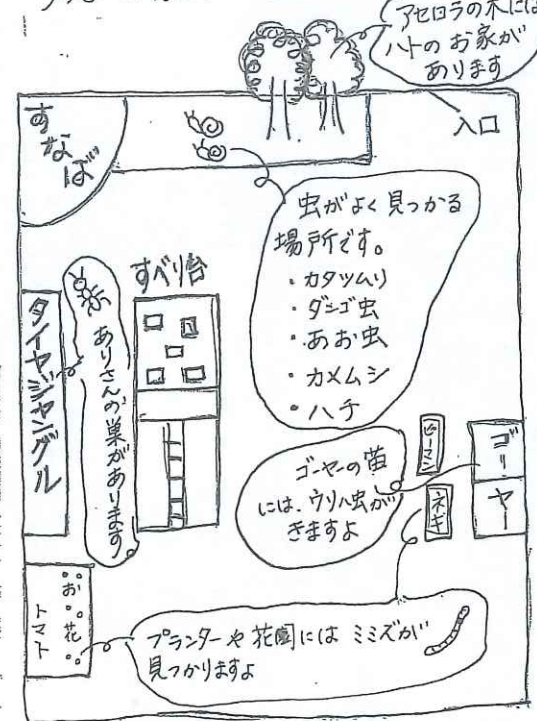 アセロラの木には
ハトのお家が
あります
入口
すなば
虫がよく見つかる
場所です。
・カタツムリ
・ダンゴ虫
・あお虫
・カメムシ
・ハチ
すべり台
ありさんの巣があります
タイヤジャングル
ピーマン
ゴーヤー
ネギ
ゴーヤーの苗
には、ウリハ虫が
きますよ
お花
トマト
プランターや花園には ミミズが
見つかりますよ